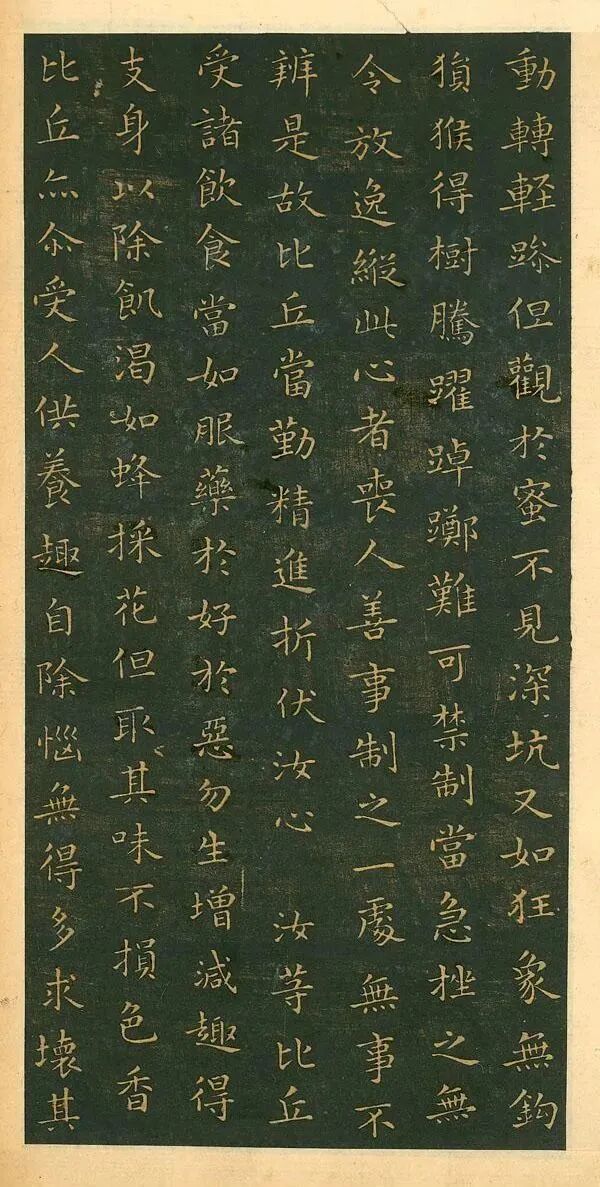 動轉輕躁但觀於蜜不見深坑又如狂象無鈎
猨猴得樹騰躍踔躑難可禁制當急挫之無
令放逸縱此心者喪人善事制之一處無事不
辦是故比丘當勤精進折伏汝心　汝等比丘
受諸飲食當如服藥於好於惡勿生增減趣得
支身以除飢渴如蜂採花但取其味不損色香
比丘亦尒受人供養趣自除惱無得多求壞其